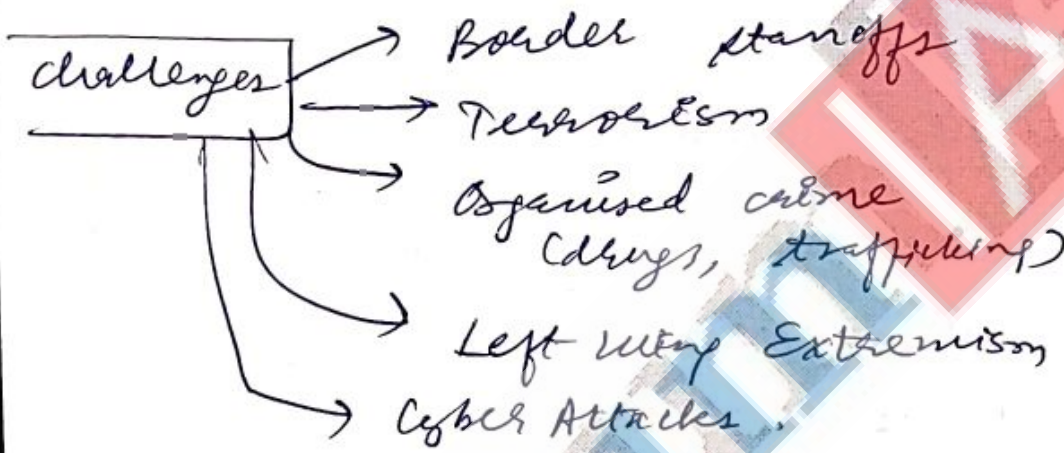 challenges
Border standoffs
Terrorism
Organised crime
(drugs, trafficking)
Left wing Extremism
Cyber Attacks.